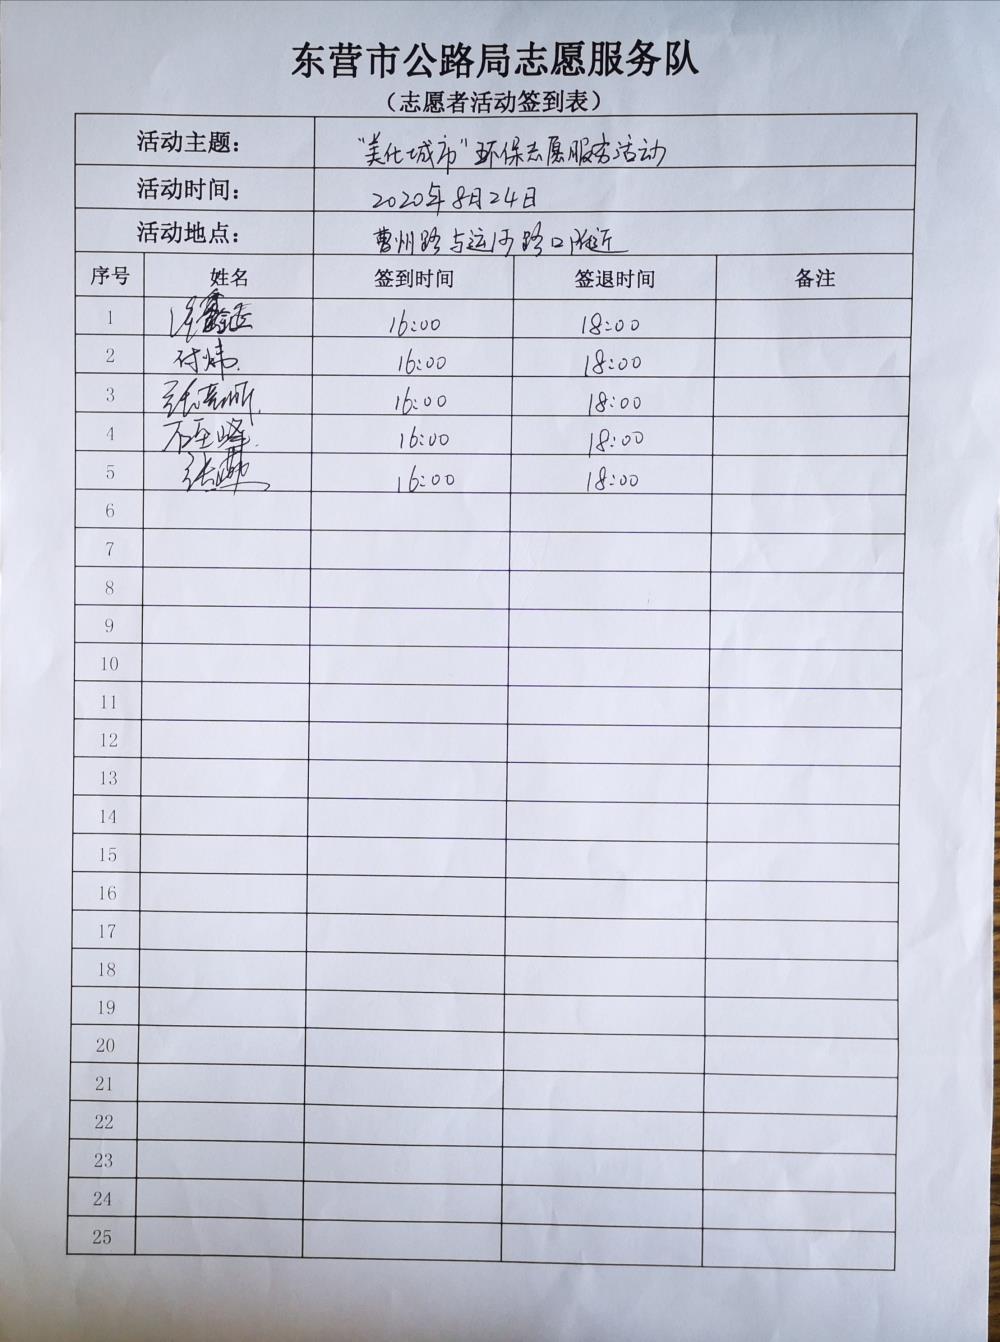 东营市公路局志愿服务队
（志愿者活动签到表）
活动主题： “美化城市”环保志愿服务活动
活动时间： 2020年8月24日
活动地点： 曹州路与运河路口附近
序号 姓名 签到时间 签退时间 备注
1 16:00 18:00
2 付炜 16:00 18:00
3 张 16:00 18:00
4 石至峰 16:00 18:00
5 张 16:00 18:00
6
7
8
9
10
11
12
13
14
15
16
17
18
19
20
21
22
23
24
25